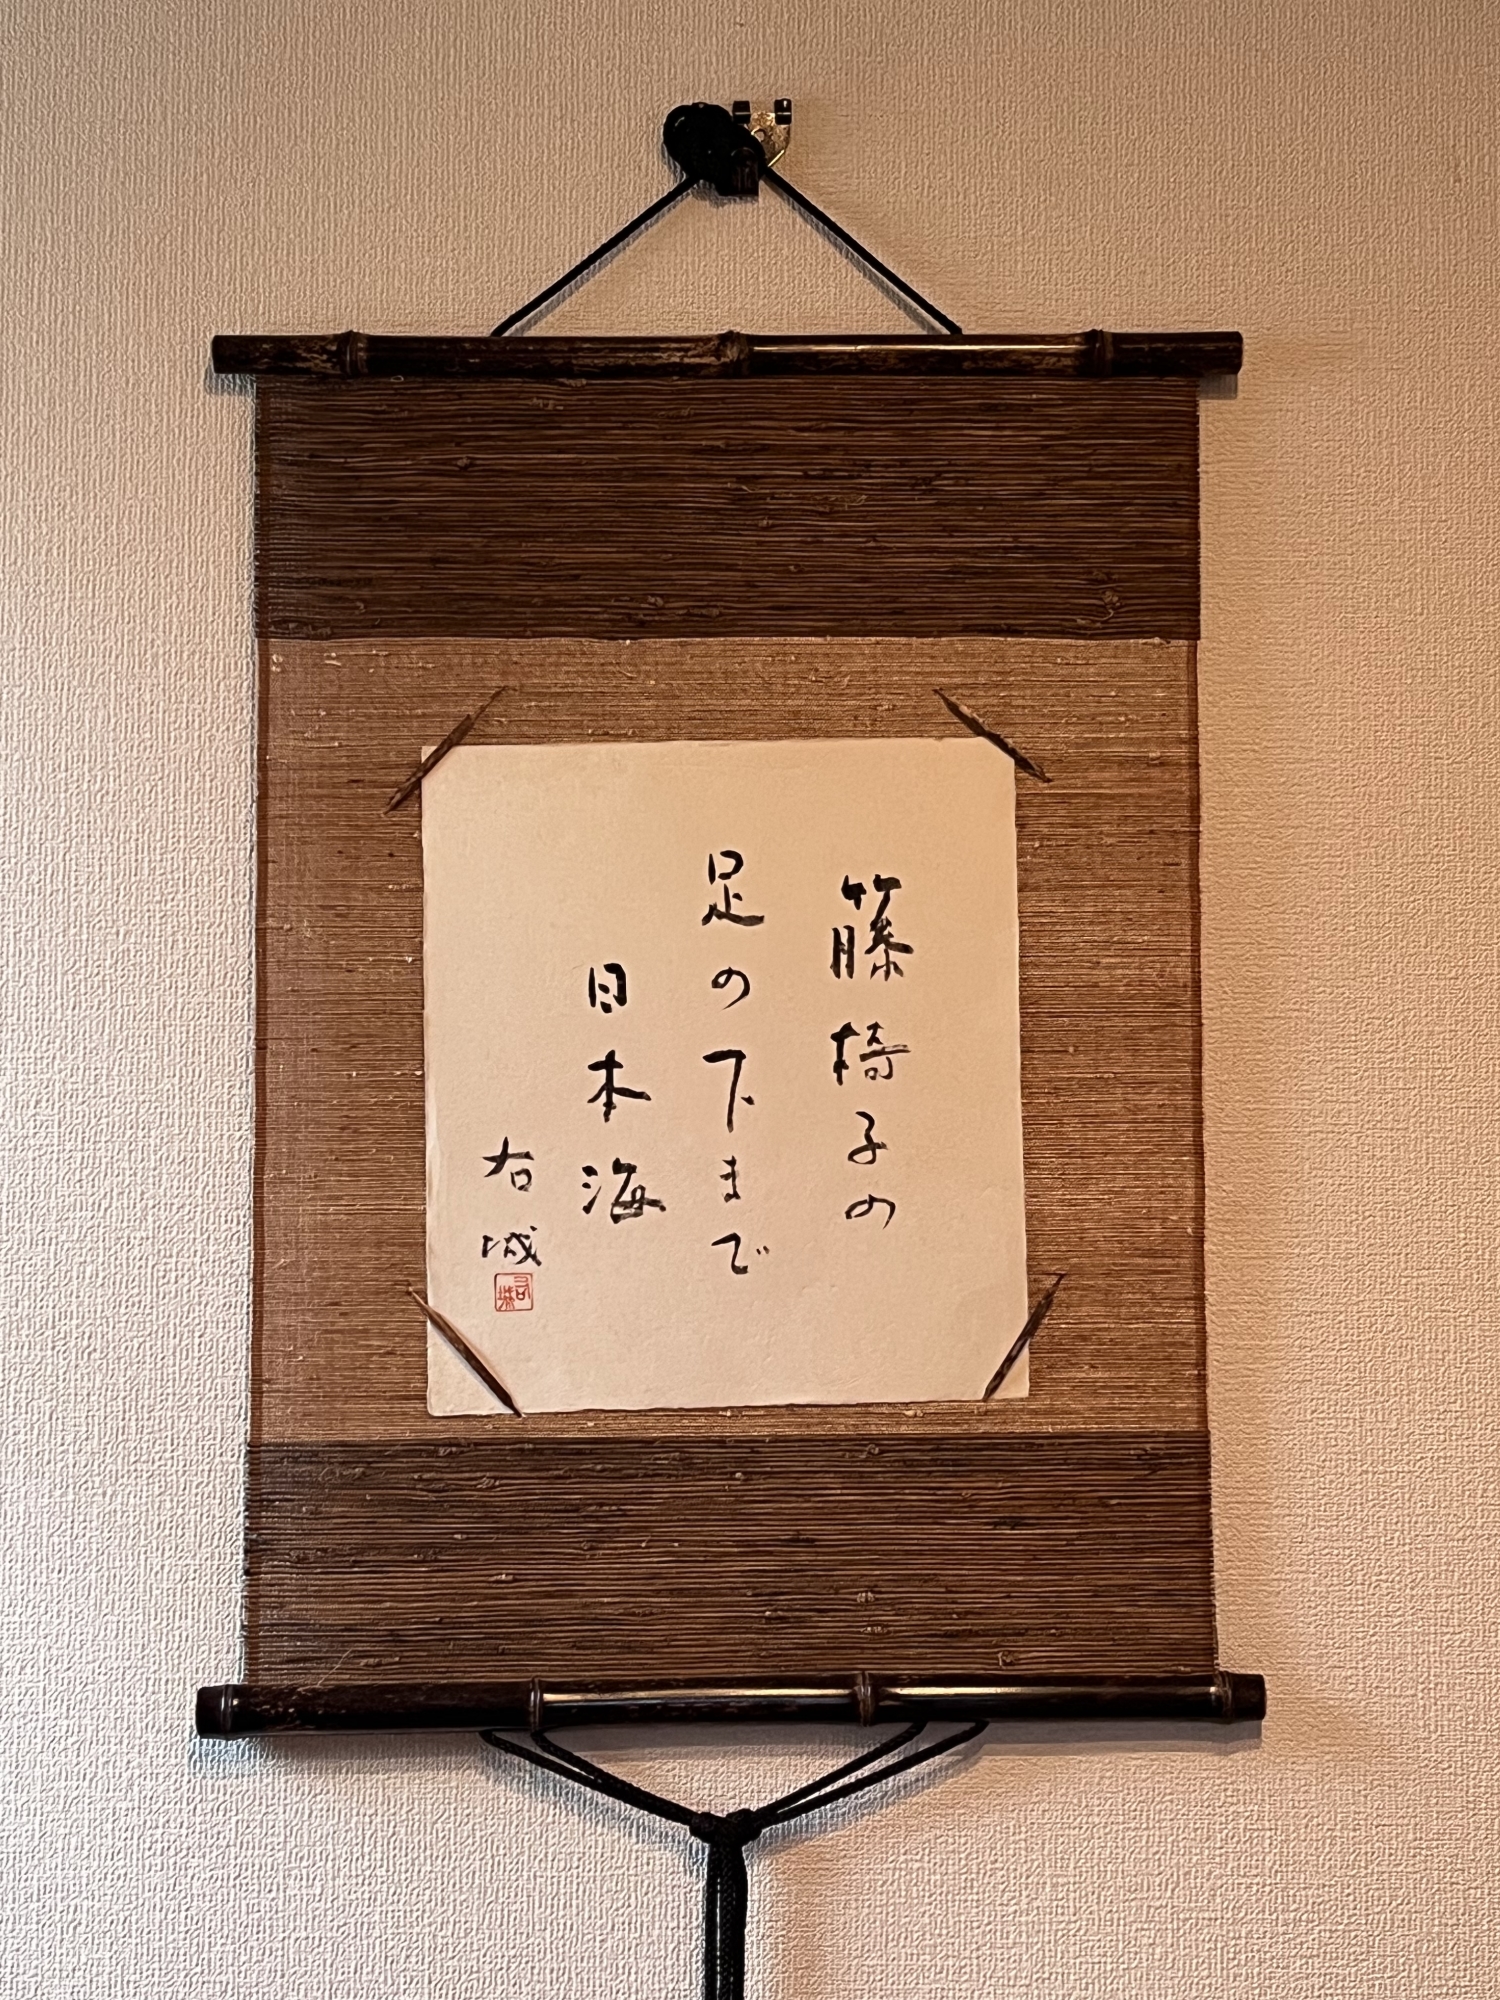 籐椅子の
足の下まで
日本海
右城
右城